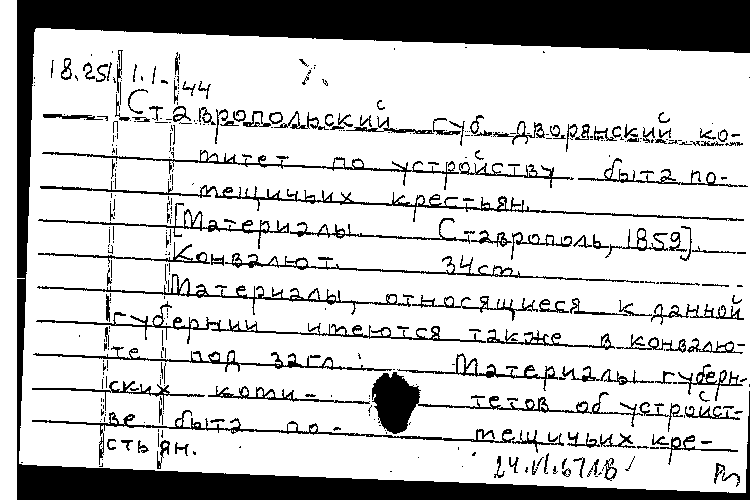 18.251.1.1-44
Ставропольский губ. дворянский ко-
митет по устройству быта по-
мещичьих крестьян.
[Материалы. Ставрополь, 1859].
Конволют. 34см.
Материалы, относящиеся к данной
губернии имеются также в конволю-
те под загл.: Материалы губерн-
ских коми- тетов об устройст-
ве быта по- мещичьих кре-
стьян.
24.VI.67